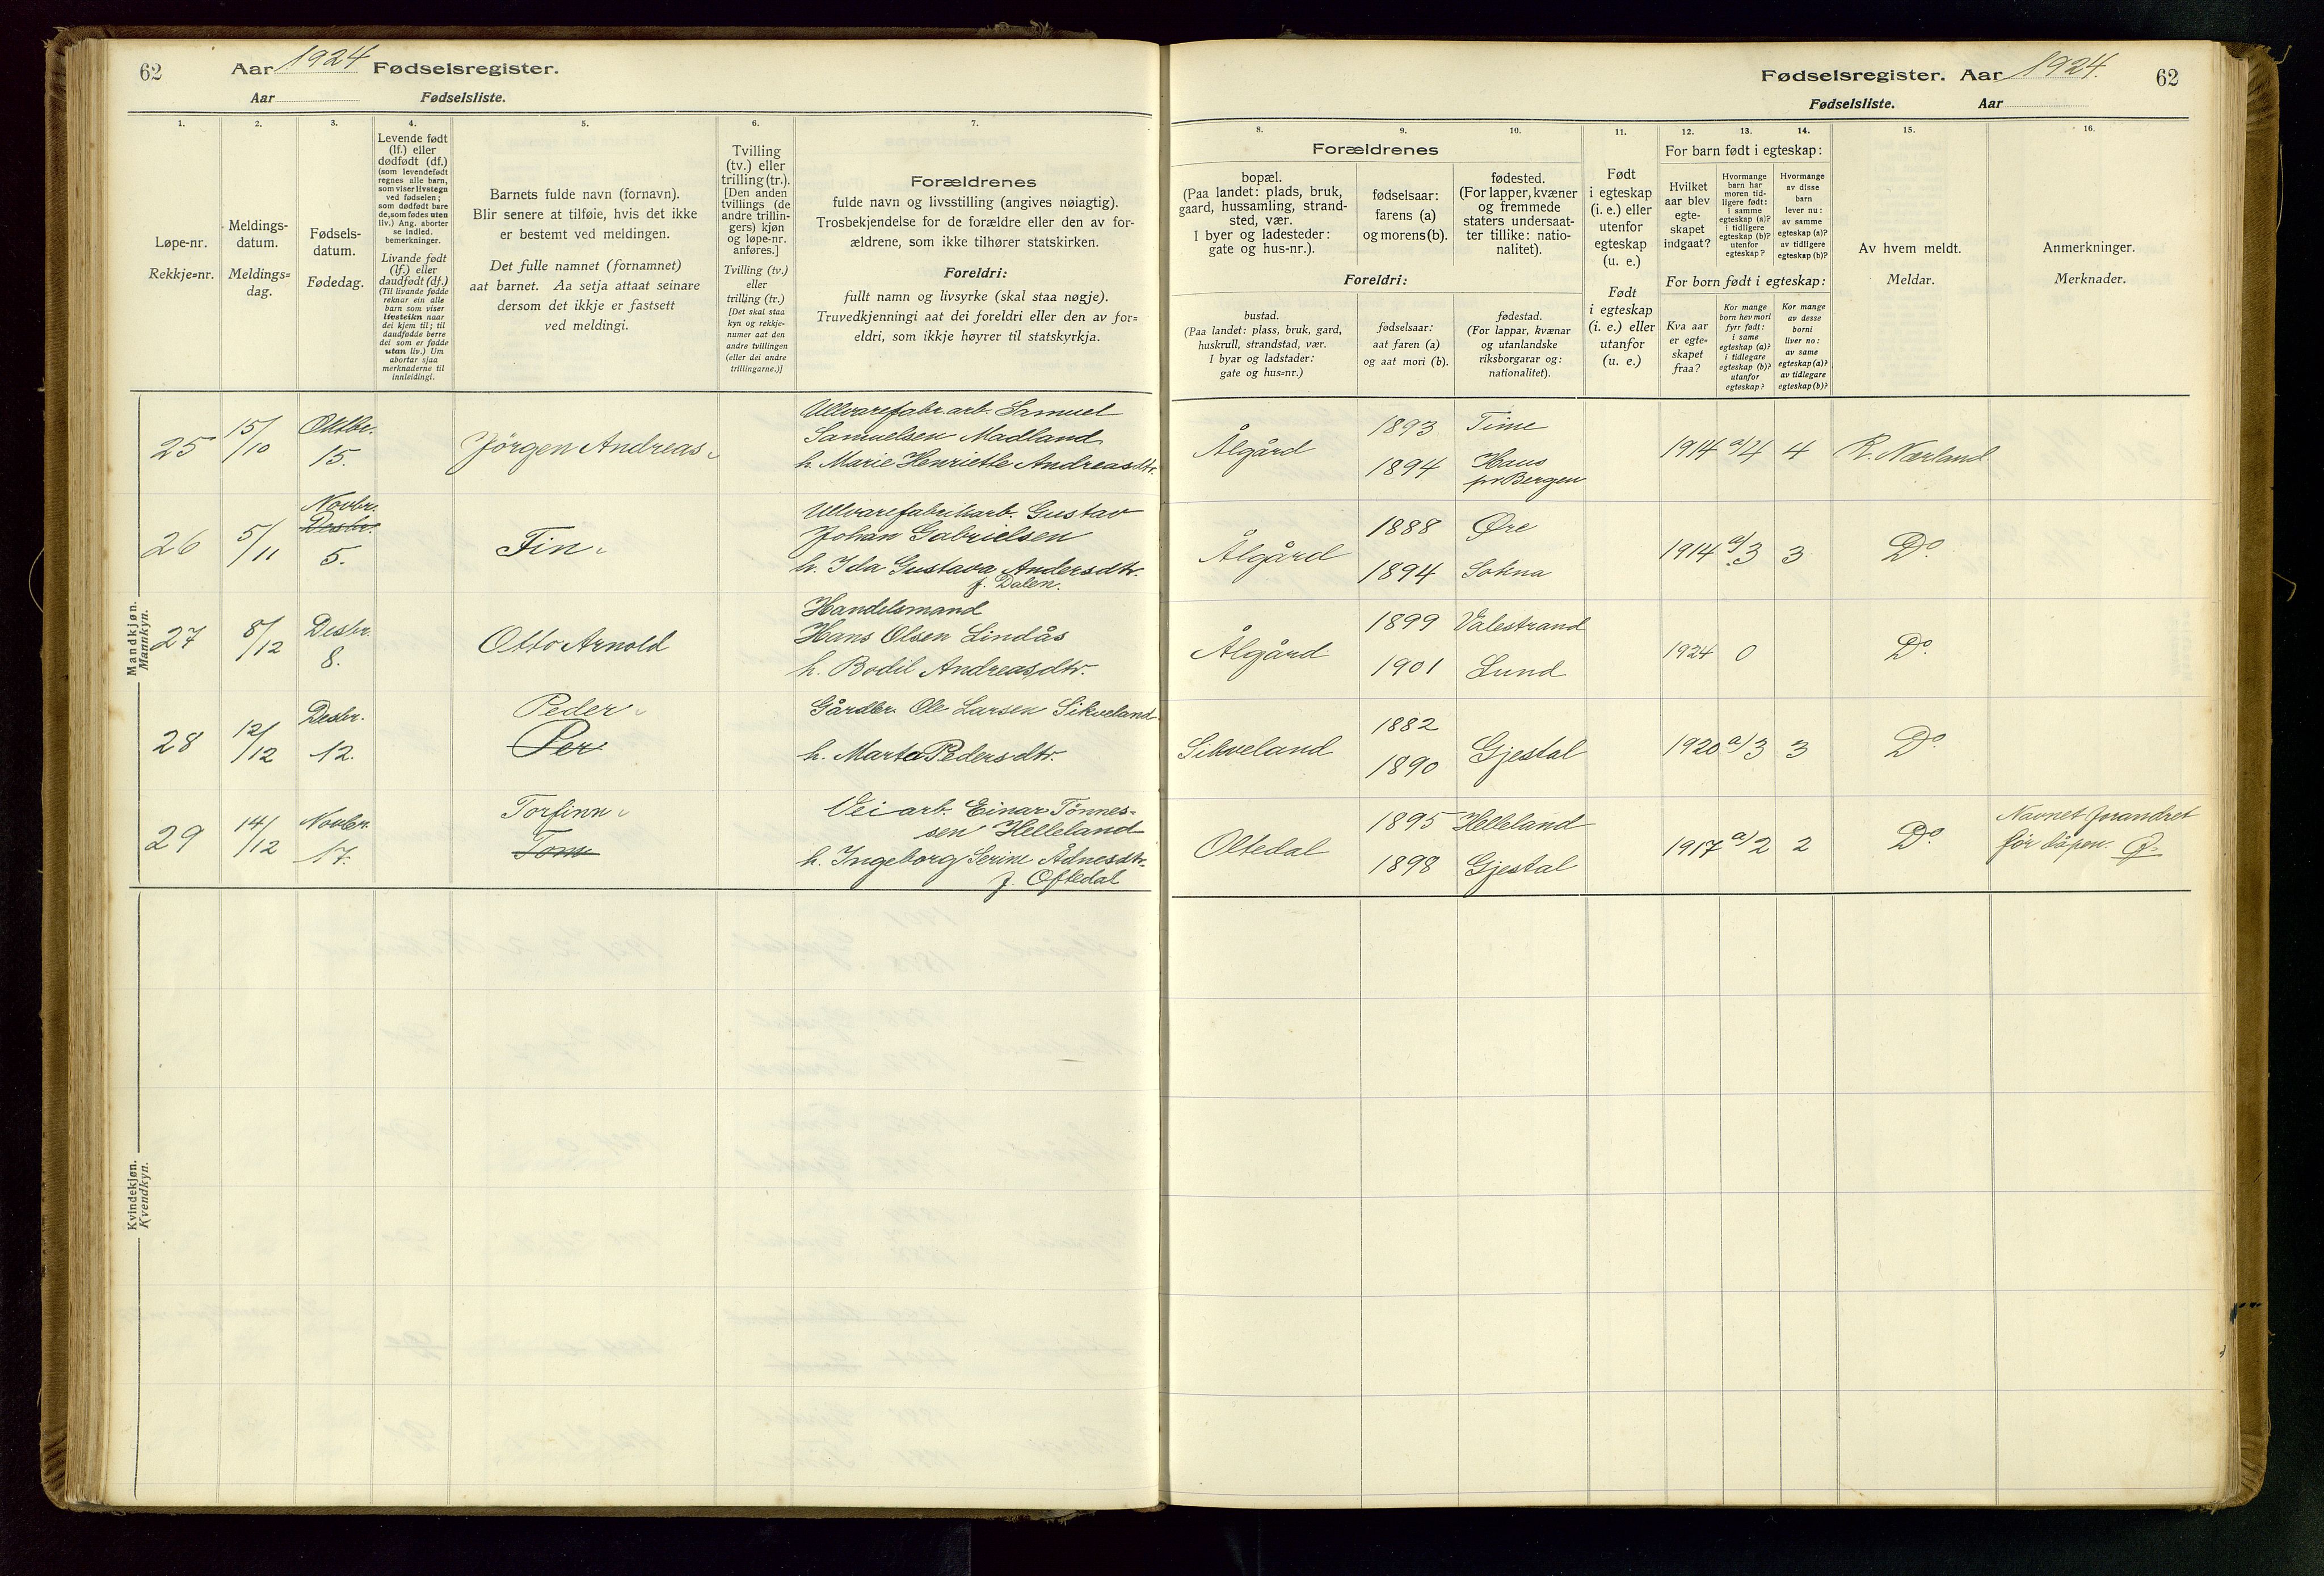 62
Aar 1924 Fødselsregister.
Aar Fødselsliste.
Fødselsregister. Aar 1924.
62
Fødselsliste. Aar
1.
Løpe-nr.
Rekkje=nr.
2.
Meldings-
datum.
Meldings=
dag.
3.
Fødsels-
datum.
Fødedag.
4.
Levende født
(lf.) eller
dødfødt (df.)
(som levendefødt
regnes alle barn,
som viser livstegn
ved fødselen;
som dødfødt bare
de, som fødes uten
liv.) Ang. aborter
se indled.
bemerkninger.
Livande født
(lf.) eller
daudfødt (df.)
(Til livande fødde
reknar ein alle
barn som viser
livsteikn naar
dei kjem til; til
daudfødde berre
dei som er fødde
utan liv.) Um
abortar sjaa
merknaderne til
innleidingi.
5.
Barnets fulde navn (fornavn).
Blir senere at tilføie, hvis det ikke
er bestemt ved meldingen.
Det fulle namnet (fornamnet)
aat barnet. Aa setja attaat seinare
dersom det ikkje er fastsett
ved meldingi.
6.
Tvilling
(tv.) eller
trilling (tr.).
[Den anden
tvillings (de
andre trillin-
gers) kjøn
og løpe-nr.
anføres.]
Tvilling (tv.)
eller
trilling (tr.)
[Det skal staa
kyn og rekkje-
numer aat den
andre tvillingen
(eller dei andre
trillingarne.)]
7.
Forældrenes
fulde navn og livsstilling (angives nøiagtig).
Trosbekjendelse for de forældre eller den av for-
ældrene, som ikke tilhører statskirken.
Foreldri:
fullt namn og livsyrke (skal staa nøgje).
Truvedkjenningi aat dei foreldri eller den av for=
eldri, som ikkje høyrer til statskyrkja.
8.
Forældrenes
bopæl.
(Paa landet: plads, bruk,
gaard, hussamling, strand-
sted, vær.
I byer og ladesteder:
gate og hus-nr.).
Foreldri:
bustad.
(Paa landet: plass, bruk, gard,
huskrull, strandstad, vær.
I byar og ladstader:
gate og hus=nr.)
9.
fødselsaar:
farens (a)
og morens (b).
fødselsaar:
aat faren (a)
og aat mori (b).
10.
fødested.
(For lapper, kvæner
og fremmede
staters undersaat-
ter tillike: natio-
nalitet).
fødestad.
(For lappar, kvænar
og utanlandske
riksborgarar og:
nationalitet).
11.
Født
i egteskap
(i. e.) eller
utenfor
egteskap
(u. e.)
Født
i egteskap
(i. e.) eller
utanfor
(u. e.)
12.
For barn født i egteskap:
Hvilket
aar blev
egte-
skapet
indgaat?
For born født i egteskap:
Kva aar
er egte=
skapet
fraa?
13.
Hvormange
barn har
moren tid-
ligere født:
i samme
egteskap (a)?
i tidligere
egteskap (b)?
utenfor
egteskap?
Kor mange
born hev mori
fyrr født:
i same
egteskap (a)?
i tidlegare
egteskap (b)?
utanfor
egteskap?
14.
Hvormange
av disse
barn
lever nu:
av samme
egteskap (a)?
av tidligere
egteskap (b)?
Kor mange
av desse
borni
liver no:
av same
egteskap (a)?
av tidlegare
egteskap (b)?
15.
Av hvem meldt.
Meldar.
16.
Anmerkninger.
Merknader.
Mandkjøn.
Mannkyn.
25 15/10 Oktbr. 15. Jörgen Andreas
Ullvarefabr.arb. Samuel
Samuelsen Madland
h. Marie Henriette Andreasdtr.
Ålgård 1893 Time
1894 Haus
pr Bergen
1914 a/4 4 R. Nærland
26 5/11 Novbr. Desbr. 5. Fin
Ullvarefabrikarb. Gustav
Johan Gabrielsen
h. Ida Gustava Andersdtr.
f. Dalen.
Ålgård 1888 Øre
1894 Sokna
1914 a/3 3 Do.
27 8/12 Desbr. 8. Otto Arnold
Handelsmand
Hans Olsen Lindås
h. Bodil Andreasdtr.
Ålgård 1899 Valestrand
1901 Lund
1924 0 Do.
28 12/12 Desbr. 12. Peder
Per
Gårdbr. Ole Larsen Sikveland
h. Marta Pedersdtr.
Sikveland 1882
1890 Gjestal
1920 a/3 3 Do.
29 14/12 Novbr. 17. Torfinn
Tom
Veiarb. Einar Tönnes-
sen Helleland
h. Ingeborg Serine Ådnesdtr.
f. Oftedal
Oltedal 1895 Helleland
1898 Gjestal
1917 a/2 2 Do.
Navnet forandret
før dåpen.
Kvindekjøn.
Kvendkyn.